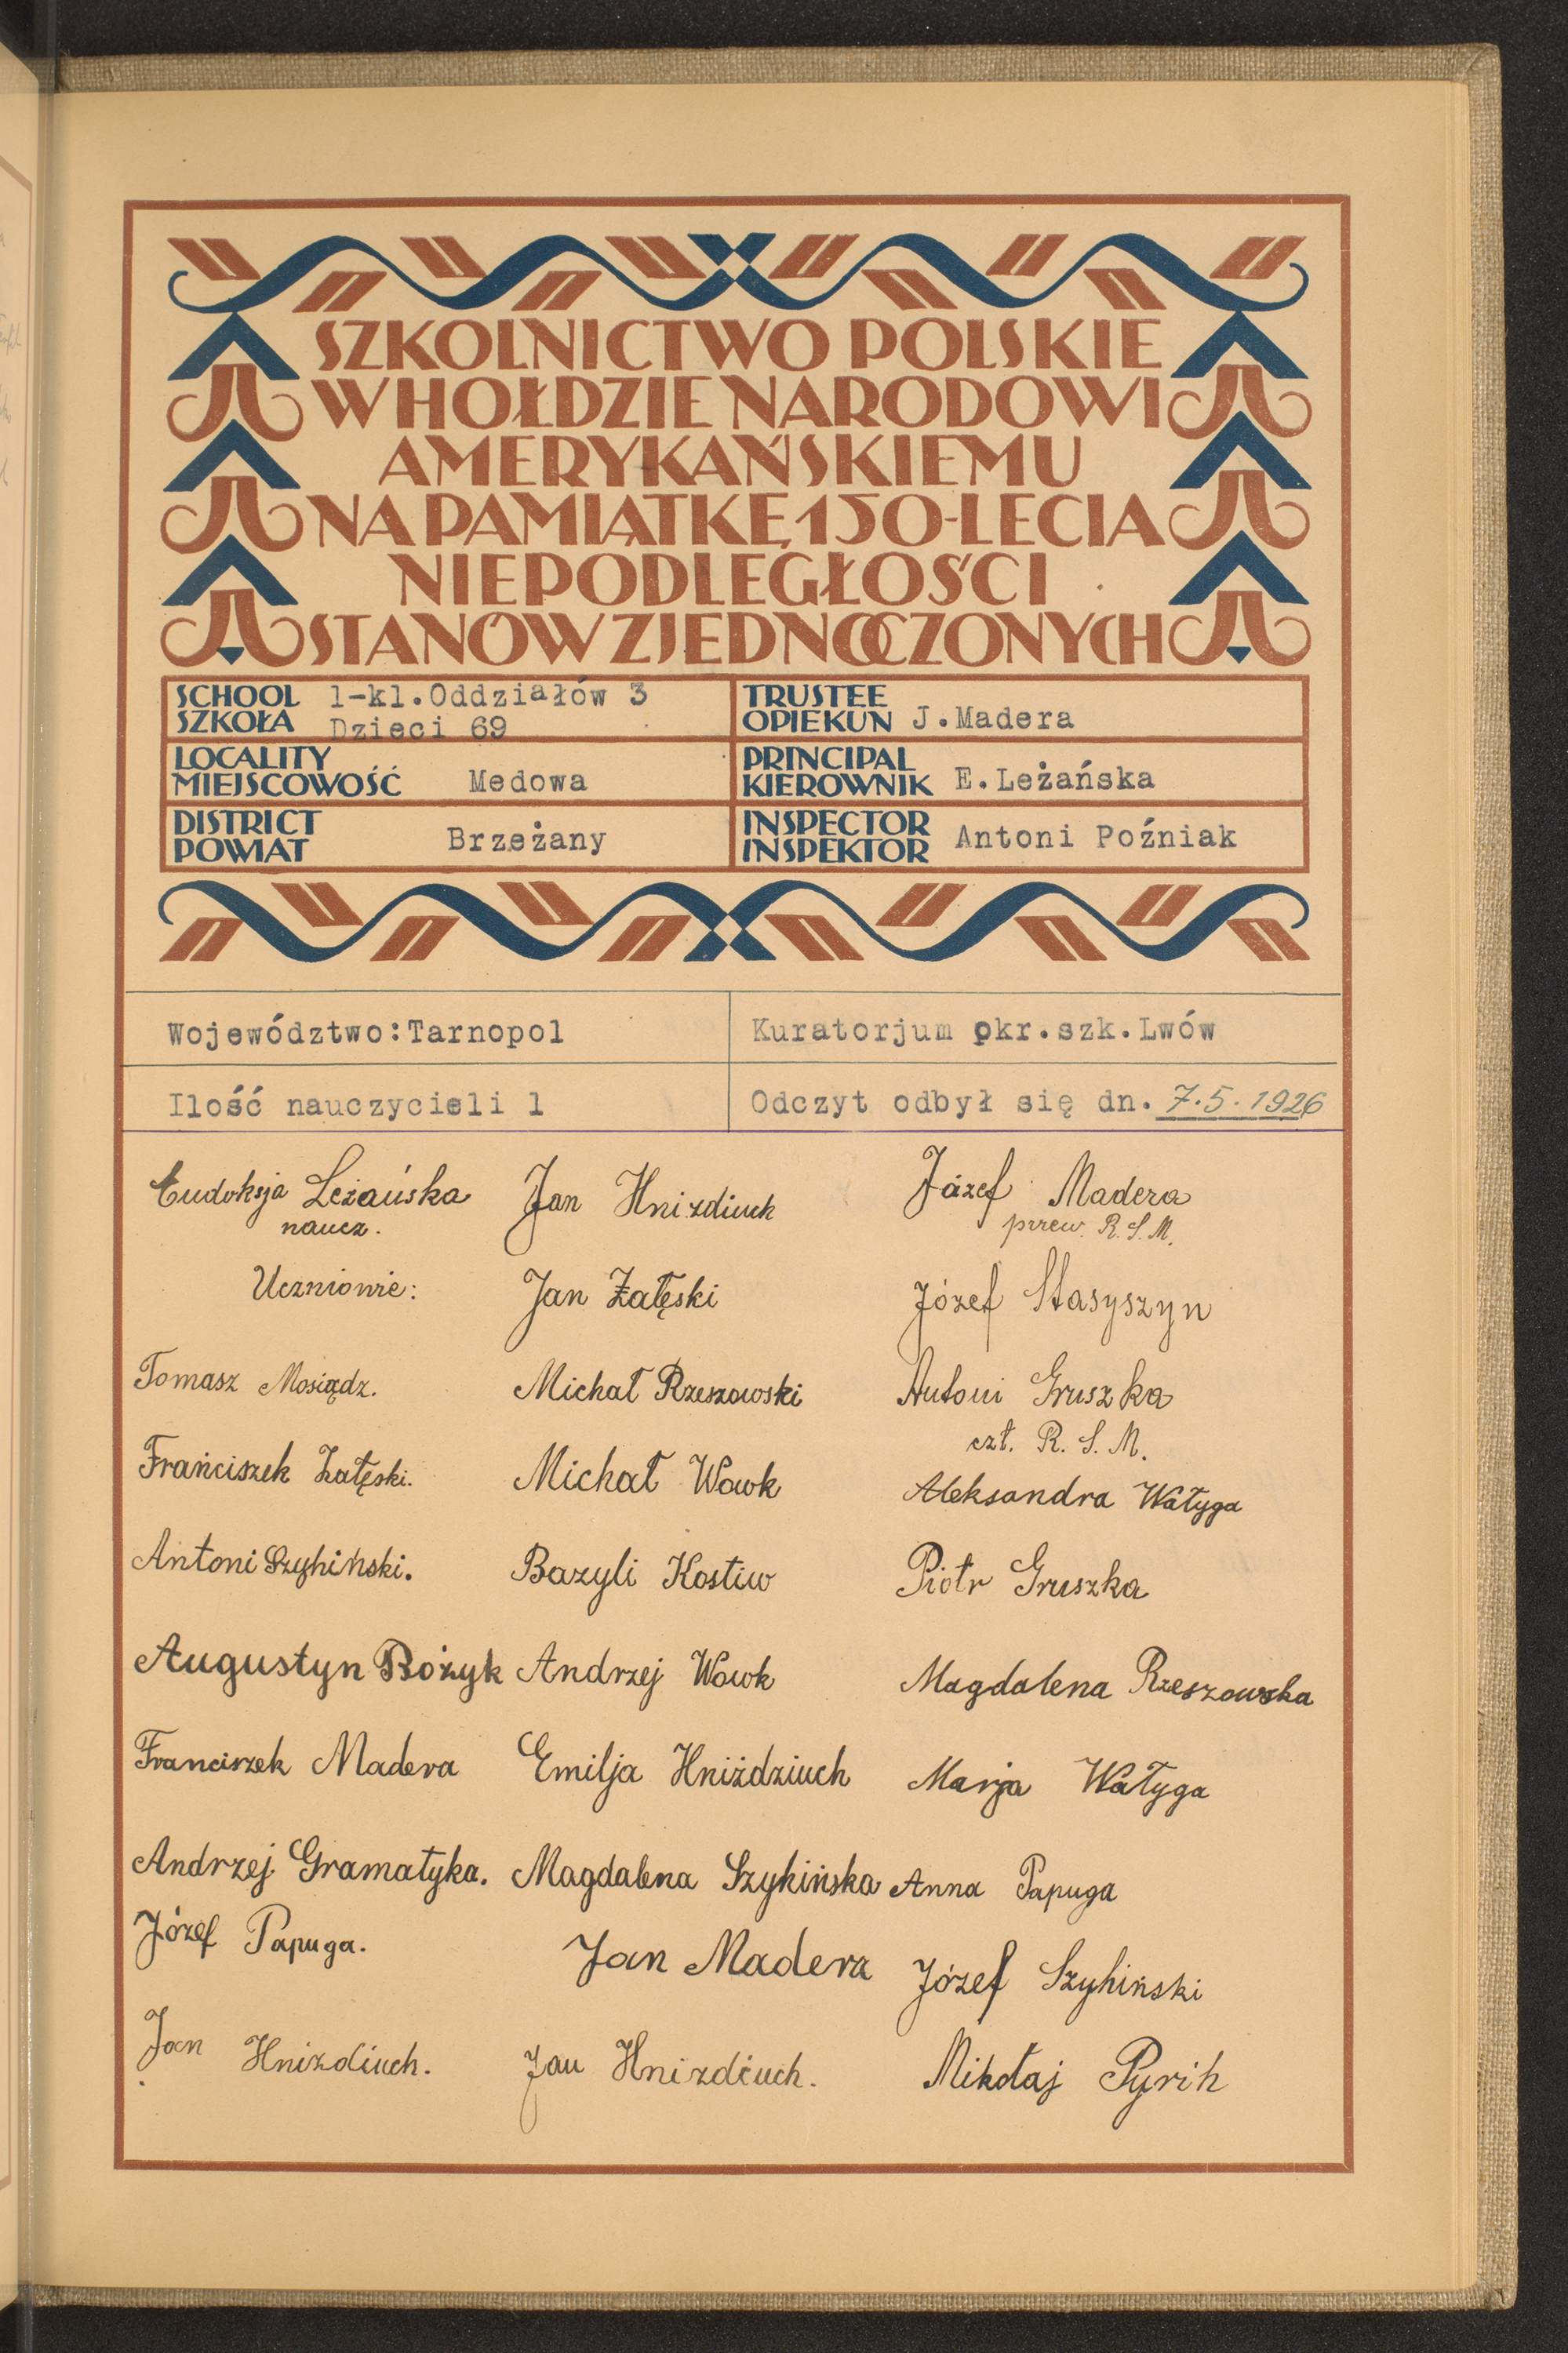 SZKOLNICTWO POLSKIE
W HOŁDZIE NARODOWI
AMERYKAŃSKIEMU
NA PAMIĄTKĘ 150-LECIA
NIEPODLEGŁOŚCI
STANÓW ZJEDNOCZONYCH
SCHOOL
SZKOŁA
1-kl.Oddziałów 3
Dzieci 69
TRUSTEE
OPIEKUN J.Madera
LOCALITY
MIEJSCOWOŚĆ Medowa
PRINCIPAL
KIEROWNIK E.Leżańska
DISTRICT
POWIAT Brzeżany
INSPECTOR
INSPEKTOR Antoni Poźniak
Województwo:Tarnopol
Kuratorjum okr.szk.Lwów
Ilość nauczycieli 1
Odczyt odbył się dn. 7.5.1926
Eudoksja Leżańska
naucz.
Uczniowie:
Tomasz Mosiądz.
Franciszek Załęski.
Antoni Szyhiński.
Augustyn Rożyk
Franciszek Madera
Andrzej Gramatyka.
Józef Papuga.
Jan Hnizdiuch.
Jan Hnizdiuch
Jan Załęski
Michał Rzeszowski
Michał Wowk
Bazyli Kostiw
Andrzej Wowk
Emilja Hniździuch
Magdalena Szykińska
Jan Madera
Jan Hnizdiuch.
Józef Madera
przew. R.S.M.
Józef Stasyszyn
Antoni Gruszka
czł. R. S. M.
Aleksandra Wałyga
Piotr Gruszka
Magdalena Rzeszowska
Marja Wałyga
Anna Papuga
Józef Szyhiński
Mikołaj Pyrih